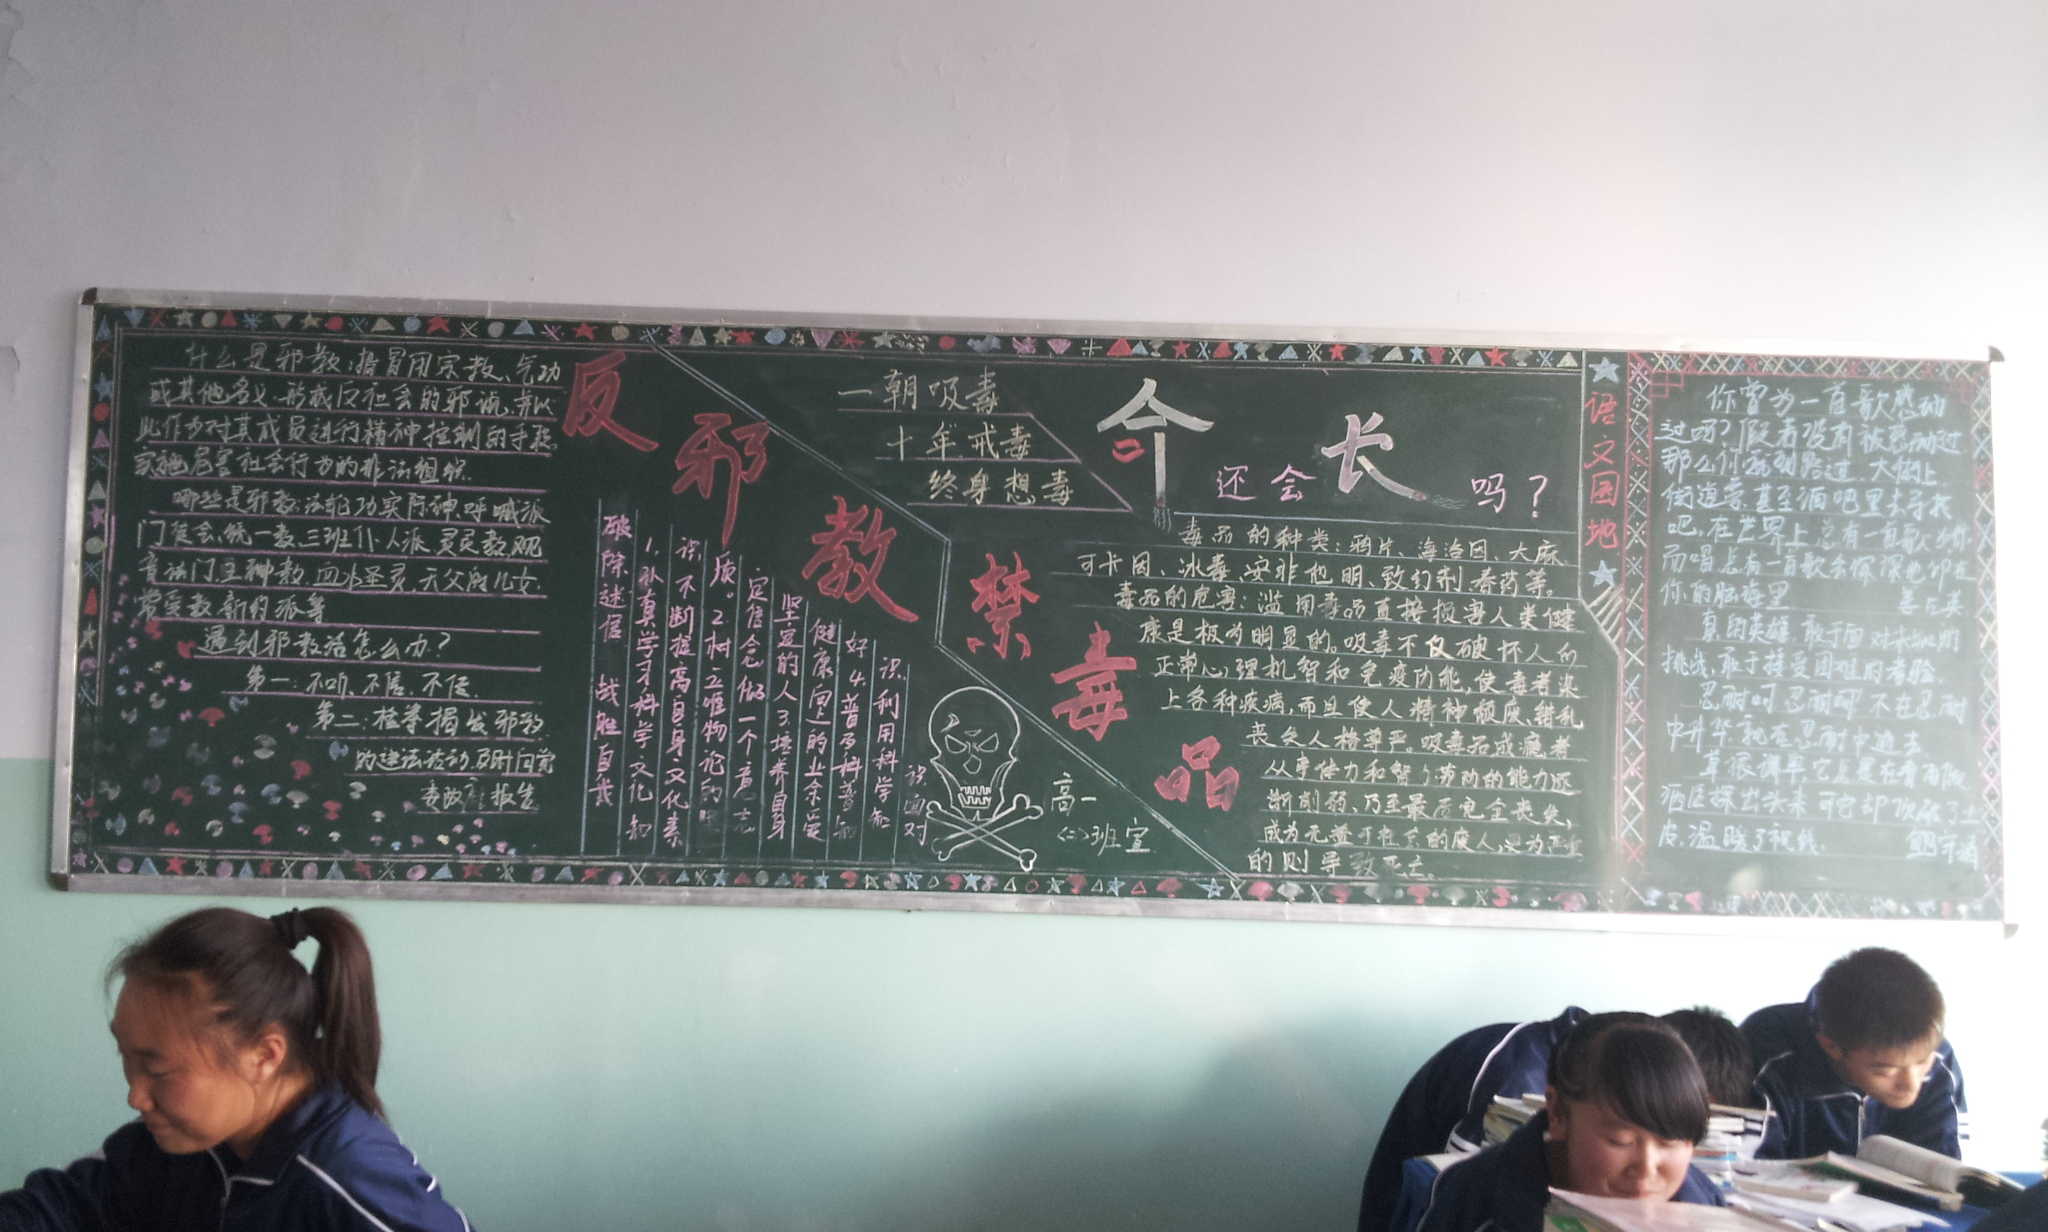 什么是邪教：指冒用宗教、气功
或其他名义，形成反社会的邪说，并以
此作为对其成员进行精神控制的手段，
实施危害社会行为的非法组织。
哪些是邪教：法轮功实际神 呼喊派
门徒会，统一教，三班仆人派，灵灵教，观
音法门 主神教 血水圣灵，天父的儿女
常受教 新约派等
遇到邪教该怎么办？
第一：不听、不信、不传、
第二：检举揭发邪教
的违法活动 及时向
报告
反邪教 禁毒品
破除迷信 战胜自我
1.认真学习科学文化知
识，不断提高自身文化素
质。2.树立唯物论的
定信念，做一个意志
坚定的人 3.培养自身
健康向上的业余爱
好 4.普及科普知
识，利用科学知
识面对
一朝吸毒
十年戒毒
终身想毒
命
还会长吗？
毒品的种类：鸦片、海洛因、大麻
可卡因、冰毒、安非他明、致幻剂 春药等。
毒品的危害：滥用毒品直接损害人类健
康是极为明显的。吸毒不仅破坏人的
正常心理机智和免疫功能，使毒者染
上各种疾病，而且使人精神颓废、错乱
丧失人格尊严。吸毒品成瘾者
从事体力和智力劳动的能力逐
渐削弱、乃至最后完全丧失，
成为无益于社会的废人，更为严重
的则导致死亡。
高一
(二)班宣
语文园地
你曾为一首歌感动
过吗？假若没有被感动过
那么你
街道旁 甚至酒吧里去寻找
吧，在世界上总有一首歌为你
而唱总有一首歌会深深地印在
你的脑海里
真的英雄 敢于面对
挑战，敢于接受困难的考验。
忍耐呵，忍耐呵 不在忍耐
中升华 就在忍耐中逝去
皮，温暖了视线。